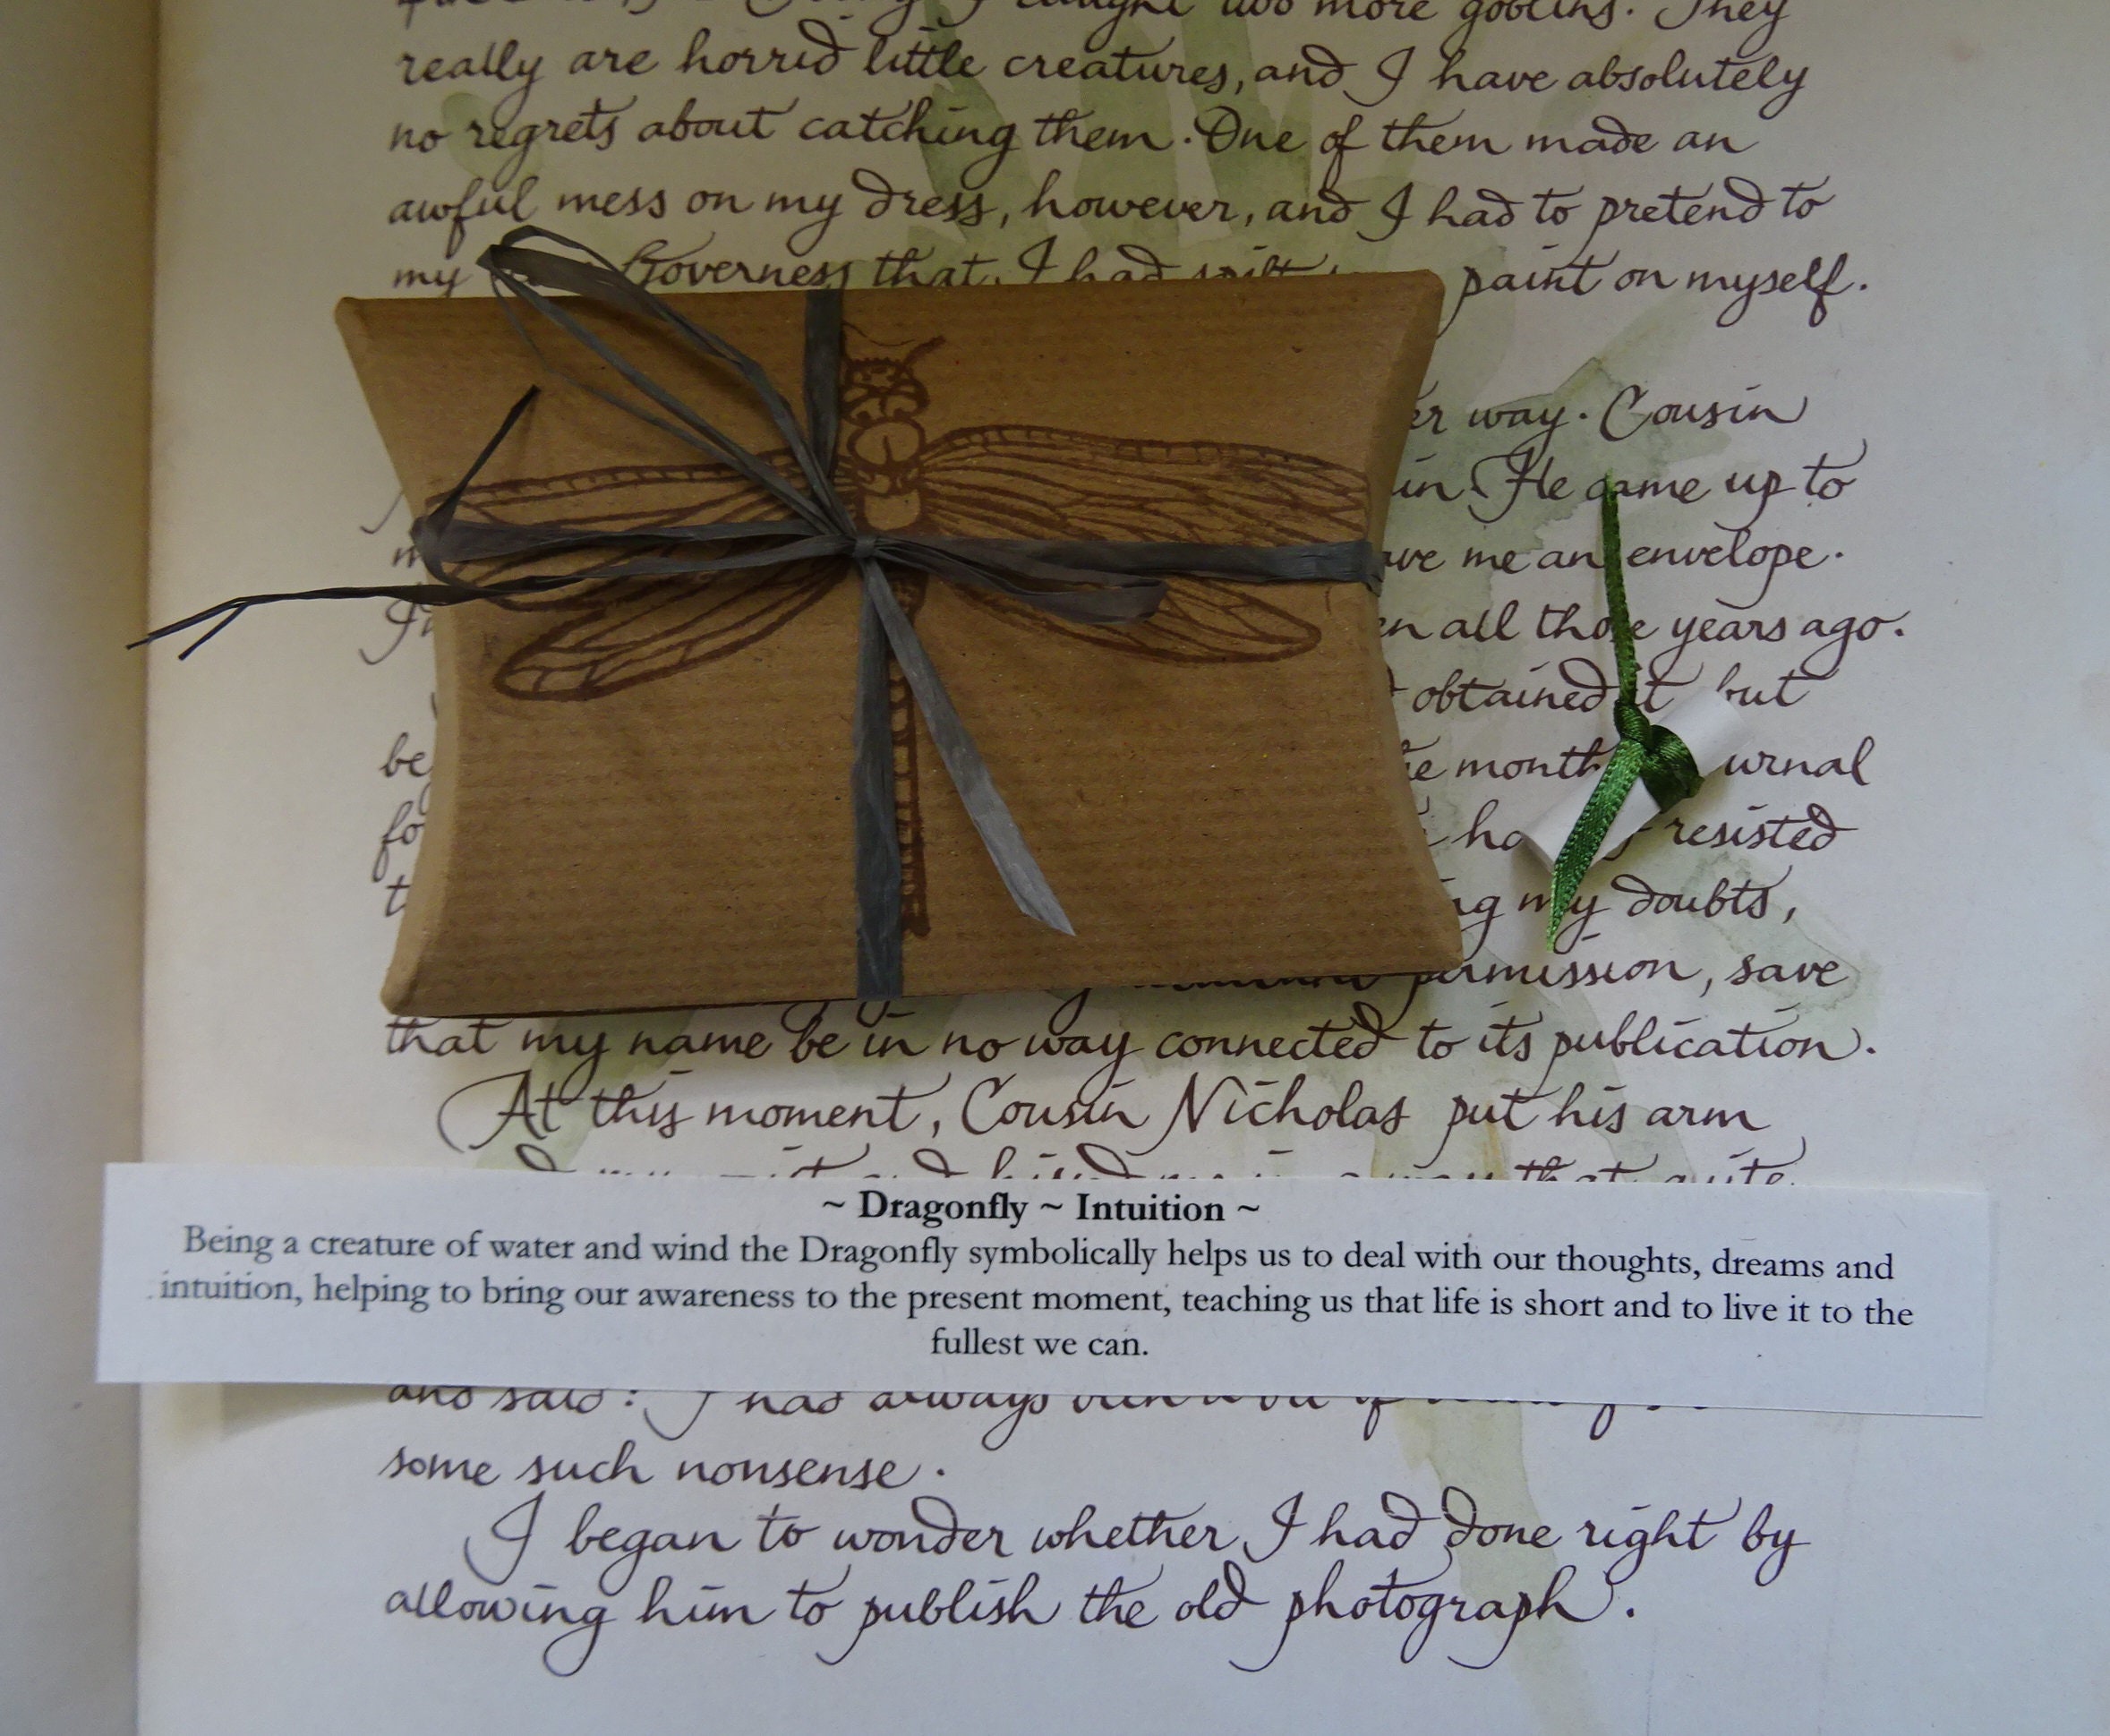 caught two more goblins. They
really are horrid little creatures, and I have absolutely
no regrets about catching them. One of them made an
awful mess on my dress, however, and I had to pretend to
my Governess that I had spilt paint on myself.
way. Cousin
He came up to
me an envelope.
all those years ago.
obtained it but
be month
resisted
my doubts,
permission, save
that my name be in no way connected to its publication.
At this moment, Cousin Nicholas put his arm
~ Dragonfly ~ Intuition ~
Being a creature of water and wind the Dragonfly symbolically helps us to deal with our thoughts, dreams and
intuition, helping to bring our awareness to the present moment, teaching us that life is short and to live it to the
fullest we can.
and said: I had always been a bit of
some such nonsense.
I began to wonder whether I had done right by
allowing him to publish the old photograph.